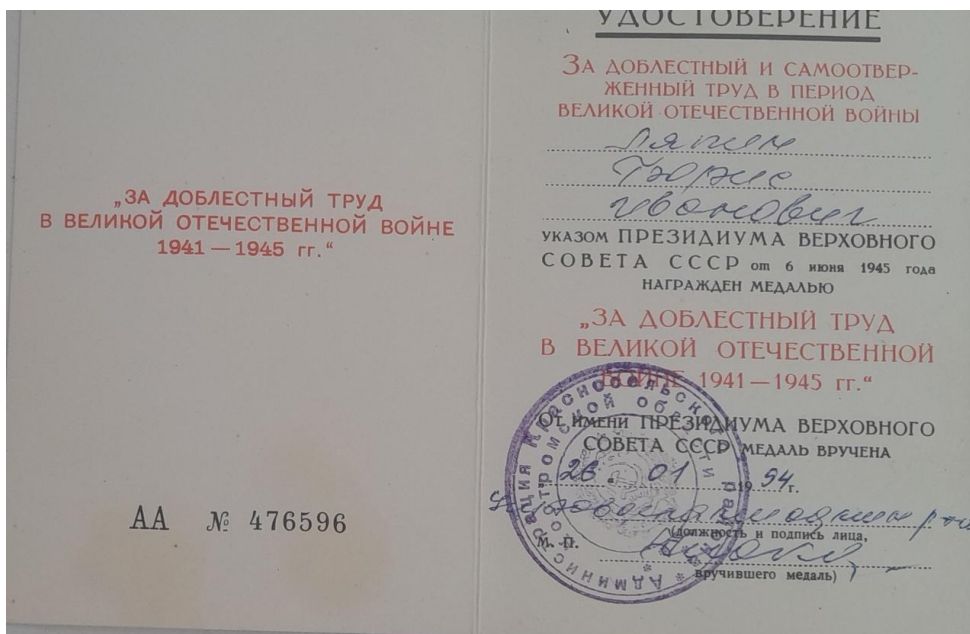 „ЗА ДОБЛЕСТНЫЙ ТРУД
В ВЕЛИКОЙ ОТЕЧЕСТВЕННОЙ ВОЙНЕ
1941 — 1945 гг.“
АА № 476596
УДОСТОВЕРЕНИЕ
ЗА ДОБЛЕСТНЫЙ И САМООТВЕР-
ЖЕННЫЙ ТРУД В ПЕРИОД
ВЕЛИКОЙ ОТЕЧЕСТВЕННОЙ ВОЙНЫ
Иванович
УКАЗОМ ПРЕЗИДИУМА ВЕРХОВНОГО
СОВЕТА СССР от 6 июня 1945 года
НАГРАЖДЕН МЕДАЛЬЮ
„ЗА ДОБЛЕСТНЫЙ ТРУД
В ВЕЛИКОЙ ОТЕЧЕСТВЕННОЙ
ВОЙНЕ 1941 — 1945 гг.“
ОТ ИМЕНИ ПРЕЗИДИУМА ВЕРХОВНОГО
СОВЕТА СССР МЕДАЛЬ ВРУЧЕНА
26 . 01 19 94 г.
(должность и подпись лица,
М. П.
вручившего медаль)
Администрация Красносельского района
Костромской области